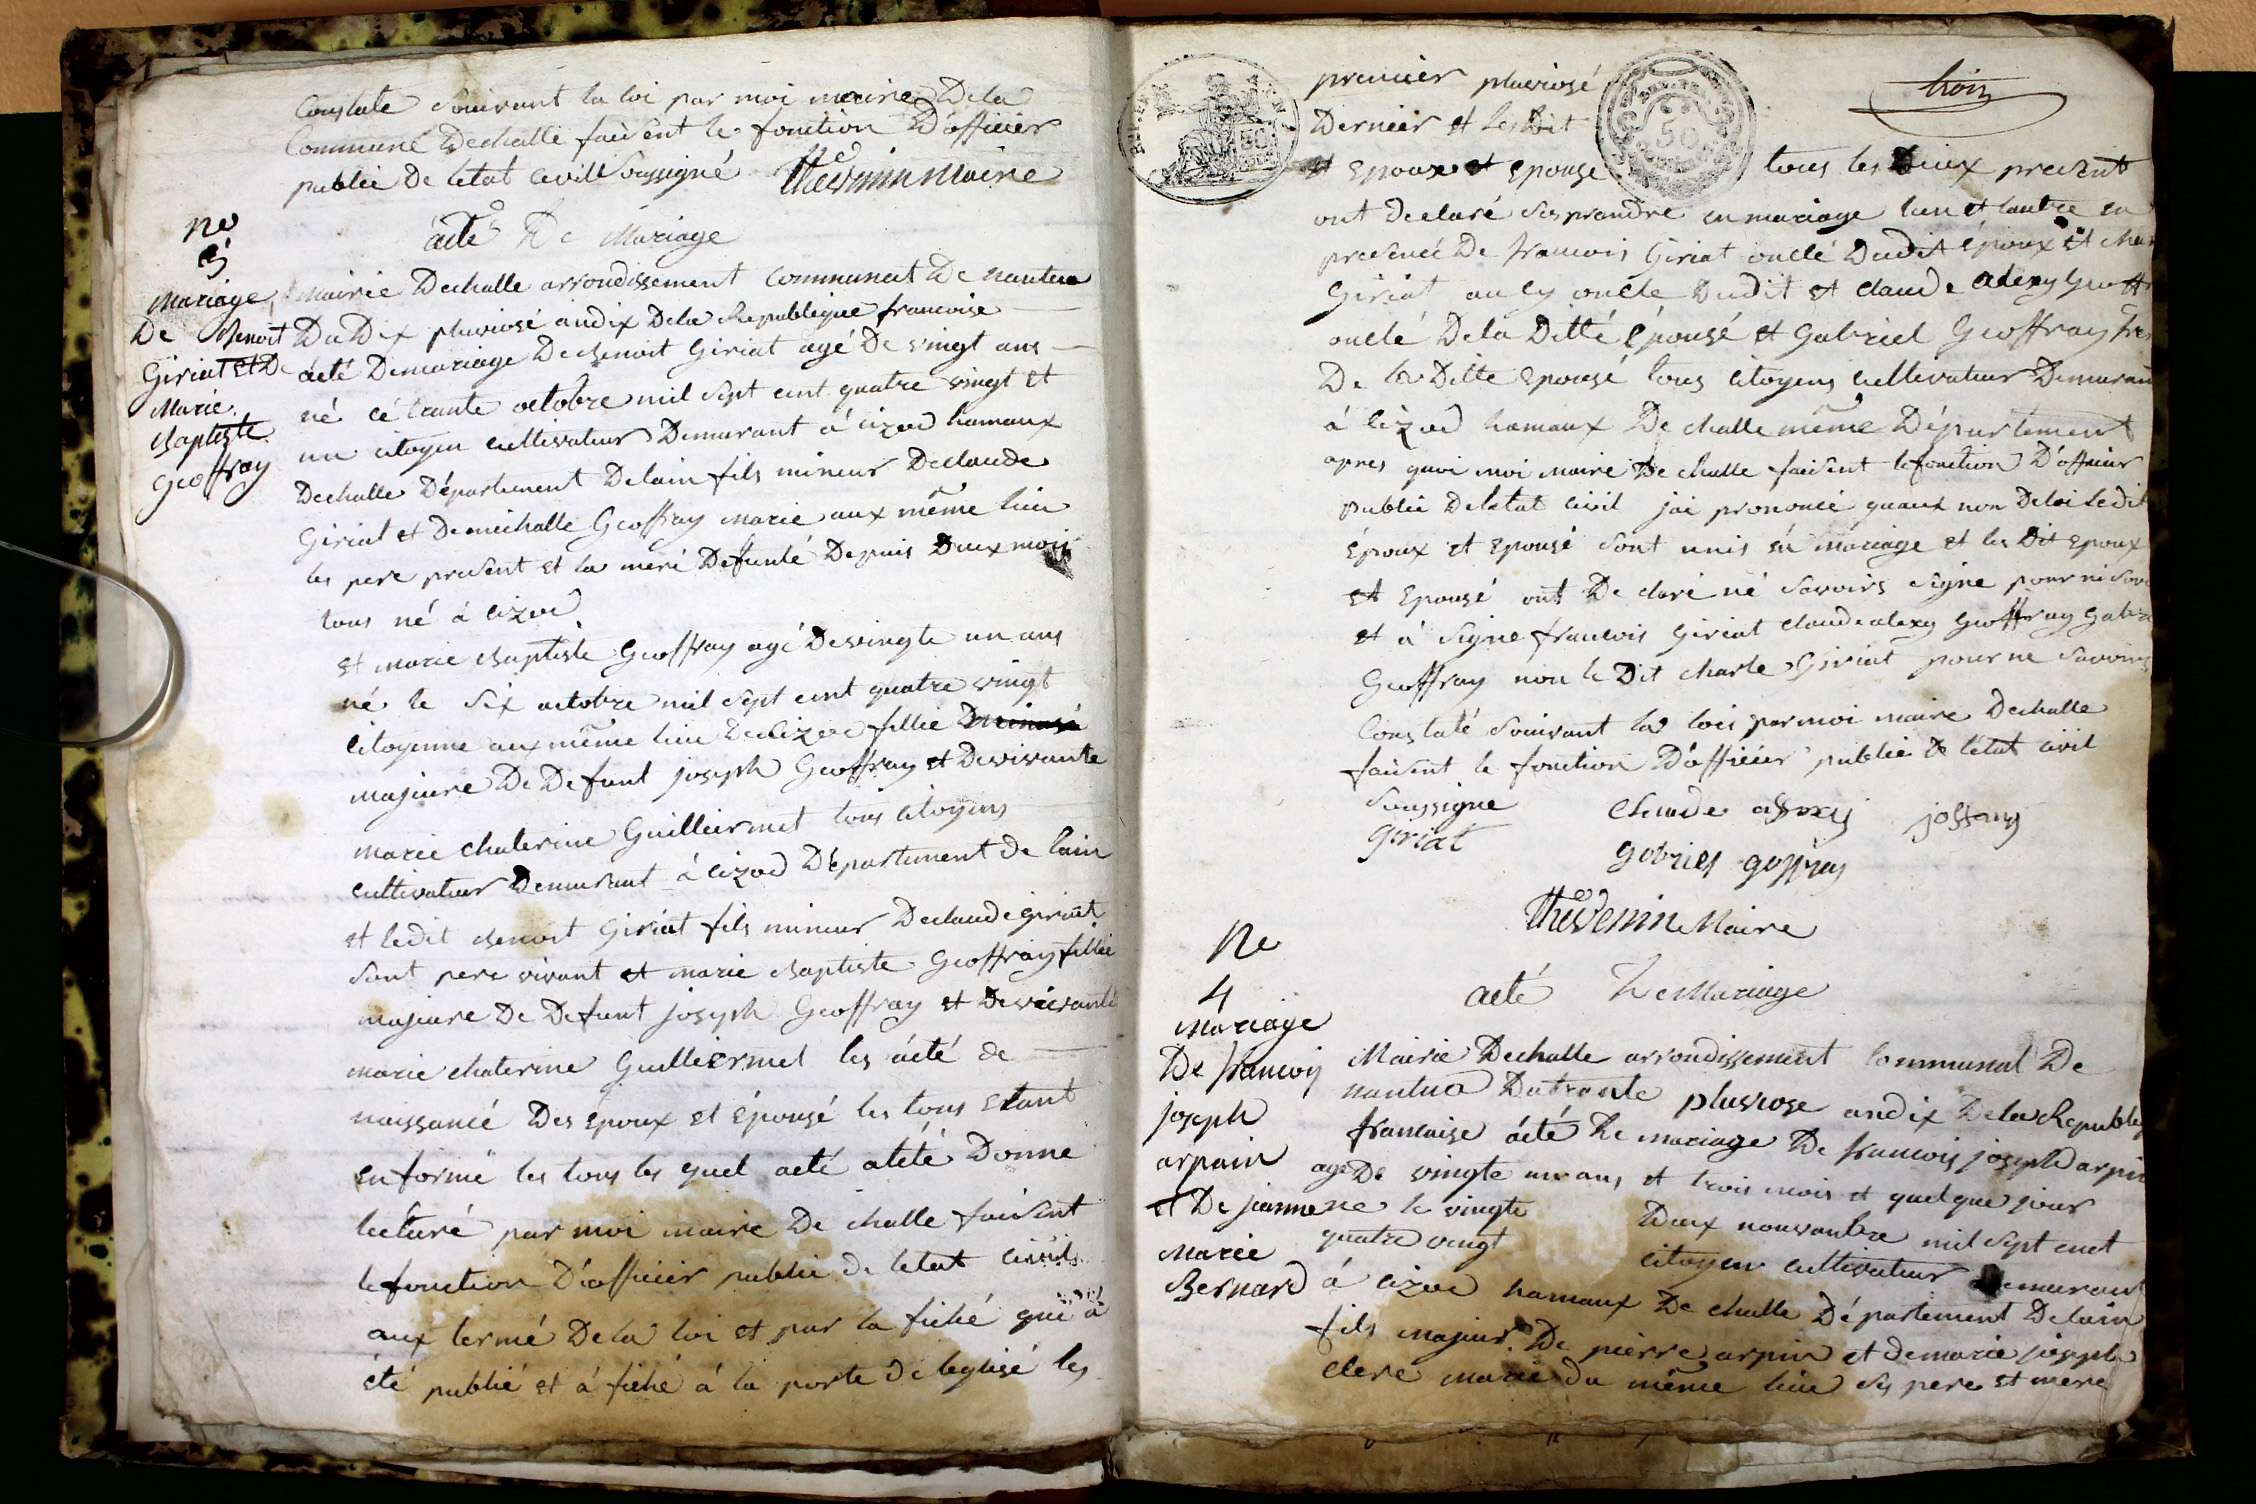 Constate suivant la loi par moi maire Dela
Commune Dechalle faisent le fonction D'officier
publié De letat civill Soussigné Thevenin Maire
no
3
acte De Mariage
mariage
De Benoit
Giriat et De
Marie
Baptiste
Geoffray
Mairie Dechalle arrondissement communat De nantua
Du Dix pluviosé andix Dela Republique francoise
acté Demariage De Benoit Giriat agé De vingt ans
né cé trante octobre mil sept cent quatre vingt et
un citoyen cultivateur Demurant á cizod hamaux
Dechalle Département Delain fils mineur Declaude
Giriat et Demichalle Geoffray marie aux même lieu
les pere present et la meré Defunté Depuis Deux mois
tous né á cizod
et marie Baptiste Geoffray agé Devingte un ans
né le six octobre mil sept cent quatre vingt
citoyenne aux même lieu De cizod fillié
majeure De Defunt joseph Geoffray et Devivante
marie chaterine Guilliermet tous citoyens
cultivateur Demurant á cizod Département de lain
et ledit Benoit Giriat fils mineur Declaude giriat
sont pere vivant et marie Baptiste Geoffray fillié
majeure De Defunt joseph Geoffray et Devivante
marie chaterine Guilliermet les acté de
naissancé Des epoux et épousé les tous etant
en formé les tous les quel acté atété Donne
lecturé par moi maire De challe faisent
le fonction D'officier publié de letat civil
aux termé De la loi et par la fiché qui á
été publié et á fiché á la porte De leglisé les
premier pluviosé
Dernier et les Dit
et epoux et epouse tous les Deux present
trois
ont Declaré ses prandre en mariage lun et lautre en
presencé De francois Giriat onclé Dudit époux et char
Giriat au cy oncle Dudit et claude alexy Geoffr
onclé Dela Ditté épousé et Gabriel Geoffray frer
De la Ditte epousé tous citoyens cultivateur Demuran
á cizod hamaux De challe même Département
apres quoi moi maire De challe faisent le fonction D'officier
publié De letat civil jai prononcé quaux non Deloi ledit
époux et epousé sont unis en mariage et les Dit epoux
et epousé ont De claré né savoirs signe pour ni savo
et á signe francois Giriat claude alexy Geoffray Gabri
Geoffray non le Dit charle Giriat pour ne savoirs
Constaté suivant la lois par moi maire Dechalle
faisent le fonction D'officiér publié De létat civil
soussigne
Giriat
claude alexxy joffray
gabriel goffray
Thevenin Maire
no
4
mariage
De francois
joseph
arpain
et De jeanne
Marie
Bernard
acté De Mariage
Mairie Dechalle arrondissement Communal De
nantua Du trante pluviose andix De la Republiq
francaise acté De mariage De francois joseph arpin
age De vingte un ans et trois mois et quelque jour
ne le vingte Deux nouvanbre mil sept cent
quatre vingt citoyen cultivateur Demurant
á cizod hamaux De challe Département Delain
fils majeur De pierre arpin et demarie joseph
clere marie du même lieu ses pere et mere